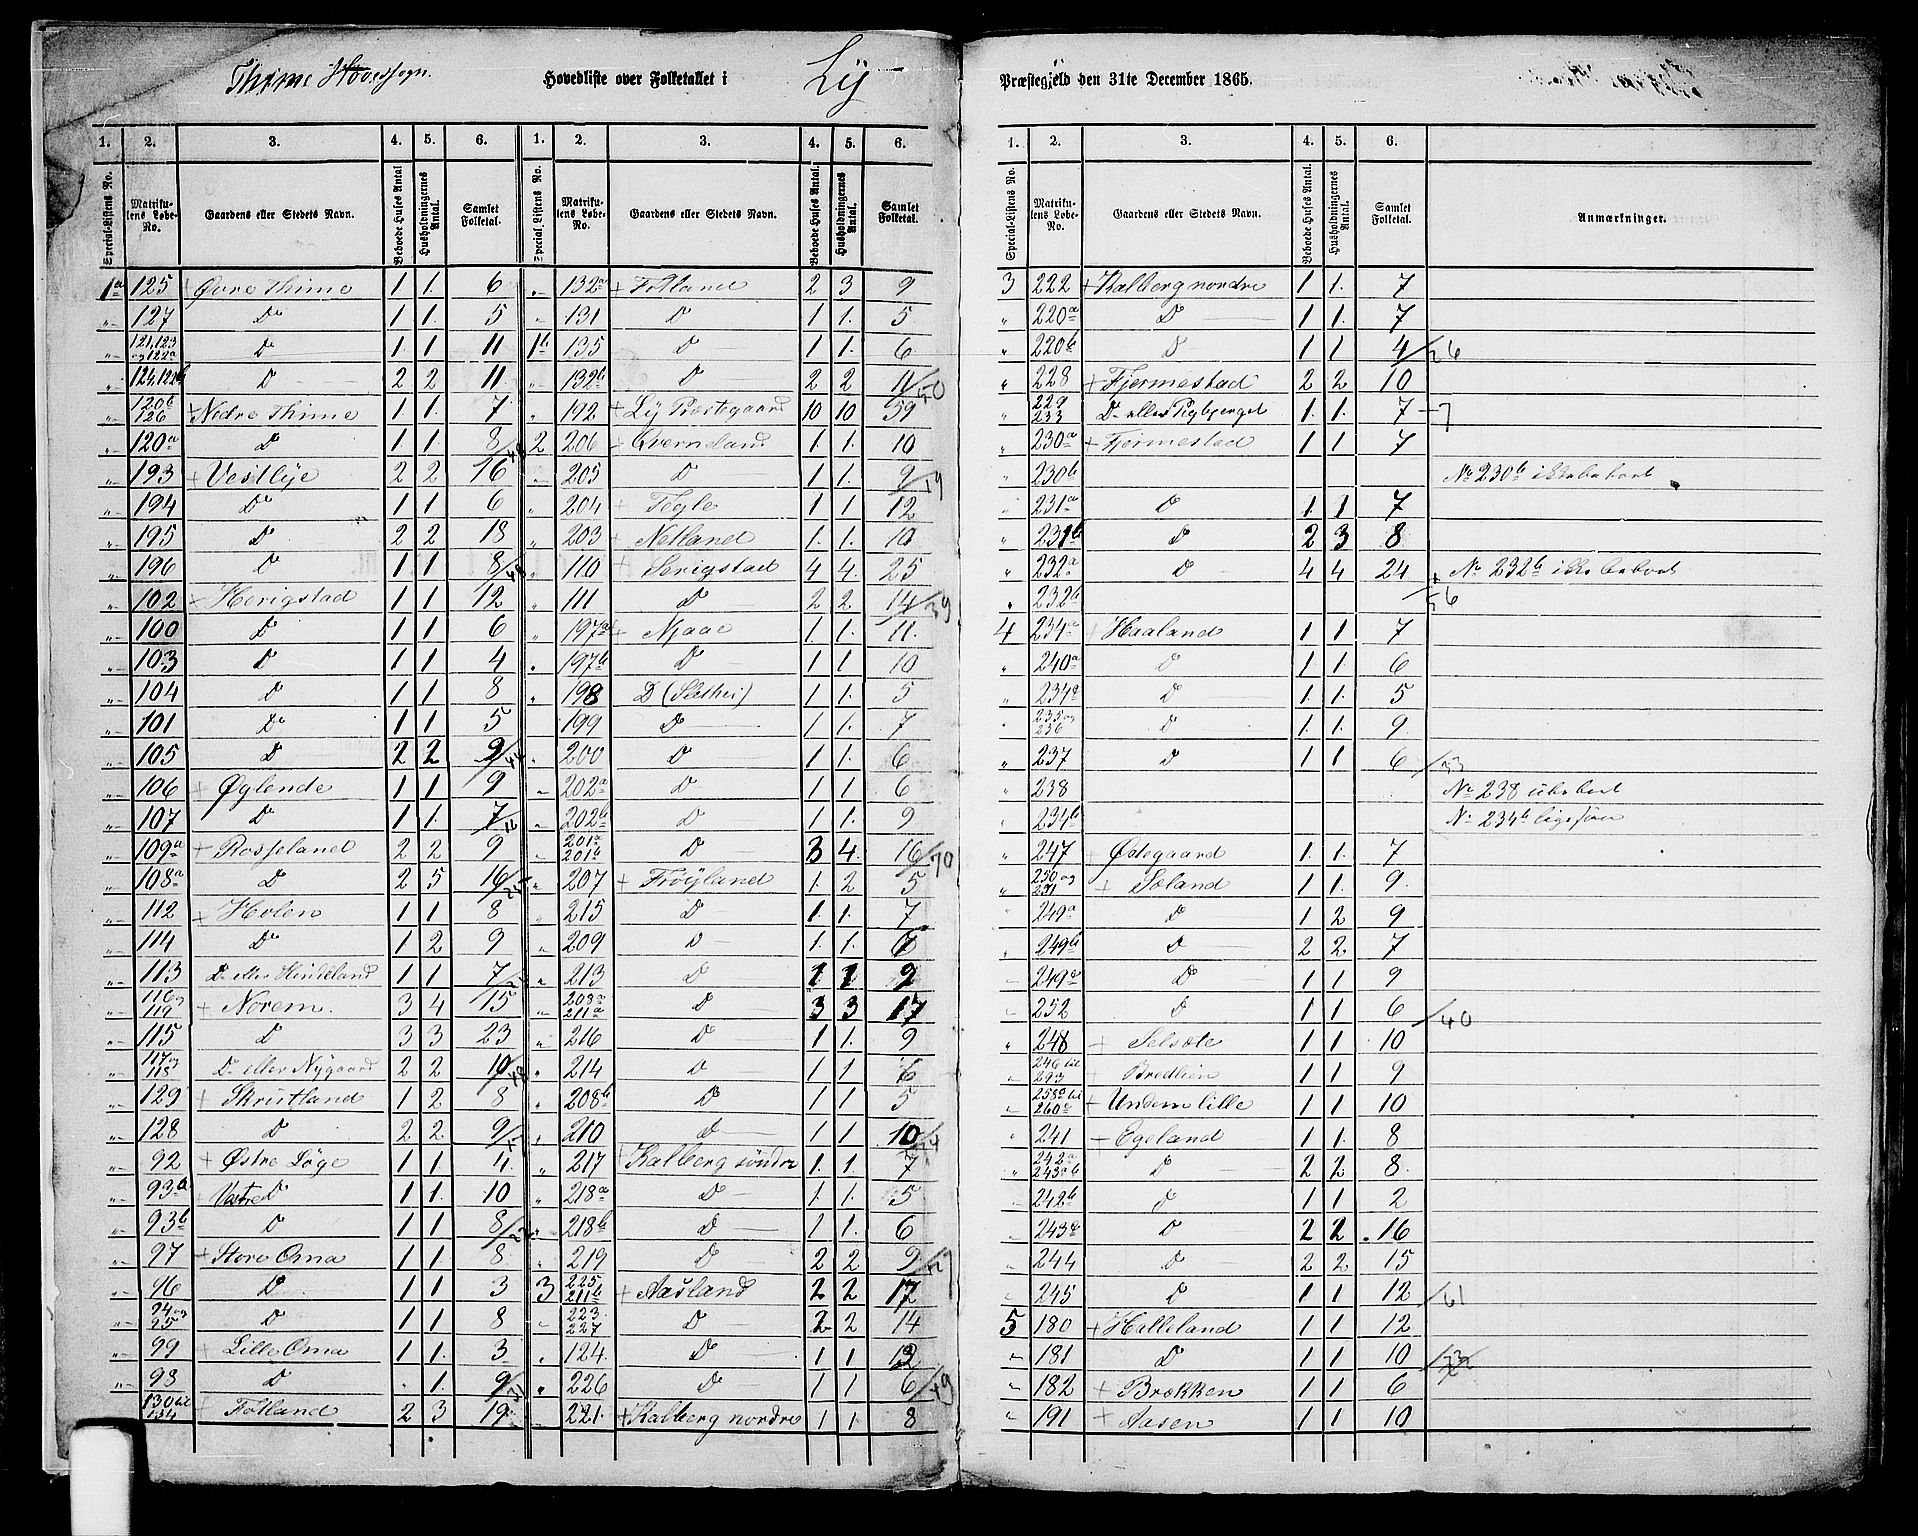 Thime Hovedsogn.
Hovedliste over Folketallet i Lÿ Præstegjeld den 31te December 1865.
1. 2. 3. 4. 5. 6.
Special-Listens No. Matrikulens Løbe-No. Gaardens eller Stedets Navn. Beboede Huses Antal Husholdningernes Antal. Samlet Folketal.
1a 125 + Øvre Thime 1 1. 6
" 127 Do 1 1. 5
" 121, 123 og 122a Do 1 1 11
" 124, 122b Do 2 2 11
" 120b 126 + Nedre Thime 1 1. 7
" 120a Do 1 1. 8/48
" 193 + Vestlÿe 2 2 16
" 194 Do 1 1 6
" 195 Do 2 2 18
" 196 Do 1 1 8/48
" 102 + Herigstad 1 1 12
" 100 Do 1 1 6
" 103 Do 1 1 4
" 104 Do 1 1 8
" 101 Do 1 1 5
" 105 Do 2 2 9/44
" 106 + Øglende 1 1 9
" 107 Do 1 1. 7/16
" 109a + Rosseland 2 2 9
" 108a Do 2 5 16/25
" 112 + Holen 1 1 8
" 114 Do 1 2 9
" 113 Do eller Hindeland 1 1 7/24
" 116 og 119 + Norem 3 4 15
" 115 Do 3 3 23
" 117 og 118 Do eller Nygaard 2 2 10/48
" 129 + Skrutland 1 2 8
" 128 Do 2 2 9/17
" 92 + Østre Löge 1 1 4
" 93a + Vestre Do 1 1. 10
" 93b Do 1 1 8/22
" 97 + Store Oma 1 1 8
" 96 Do 1 1 3
" 94 og 95 Do 1 1 8
" 99 + Lille Oma 1 1. 3
" 98 Do " 1. 9/31
" 130 til 134 + Fotland 2 3 19
1. 2. 3. 4. 5. 6.
Special Listens No. Matrikulens Løbe-No. Gaardens eller Stedets Navn. Beboede Huses Antal. Husholdningernes Antal. Samlet Folketal.
" 132a + Fotland 2 3 9
" 131 Do 1 1. 5
1b 135 Do 1 1. 6
" 132b Do 2 2 11/50
" 192 + Lÿ Præstegaard 10 10 59
2 206 + Qverneland 1 1. 10
" 205 Do 1 1. 9/19
" 204 + Tegle 1 1 12
" 203 + Netland 1. 1. 10
" 110 + Serigstad 4 4 25
" 111 Do 2 2 14/39
" 197a + Njaae 1 1. 11.
" 197b Do 1 1 10
" 198 Do (Slethei) 1 1. 5
" 199 Do 1 1. 7
" 200 Do 1 1. 6
" 202a Do 1 1 6
" 202b Do 1 1 9
" 201a 201b Do 3 4. 16/70
" 207 + Fröÿland 1. 2 5
" 215 Do 1. 1. 7
" 209 Do 1. 1.
" 213 Do 1 1 9
" 211a Do 3 3 17
" 216 Do 1 1. 9
" 214 Do 1 1
" 208b Do 1 1 5
" 210 Do 1 1 10
" 217 + Kalberg söndre 1. 1. 7
" 218a Do 1 1. 5
" 218b Do 1 1. 6
" 219 Do 2 2 9/27
3 225 211b + Aasland 2 2 17
" 223 227 Do 2 2 14
" 124. Do 1 1 12
" 226 Do 1 1 6/49
" 221. + Kalberg nordre 1 1. 8
1. 2. 3. 4. 5. 6.
Special-Listens No. Matrikulens Løbe-No. Gaardens eller Stedets Navn. Beboede Huses Antal. Husholdningernes Antal. Samlet Folketal. Anmærkninger.
3 222 + Kalberg nordre 1 1. 7
" 220a Do 1 1. 7
" 220b Do 1 1 4/26
" 228 + Fjermestad 2 2 10
" 229 233 Do eller 1 1. 7 — 7
" 230a + Fjermestad 1 1. 7
" 230b No 230b ikke beboet
" 231a Do 1 1 7
" 231b Do 2 3 8
" 232a Do 4 4 24 No 232b ikke beboet
" 232b /56
4 234a + Haaland 1 1 7
" 240a Do 1 1. 6
" 234a Do 1 1. 5
" 235 og 236 Do 1. 1. 9
" 237 Do 1 1 6/33
" 238 No 238 ubeboet
" 234b No 234b ligesaa
" 247 + Østegaard 1. 1. 7
" 250 og 251 + Soland 1 1. 9.
" 249a Do 1 2 9
" 249b Do 2 2. 7
" 249a Do 1 1 9
" 252 Do 1 1 6/40
" 248 + Selvöte 1 1 10
" 246 til 293 + Bredlien 1 1 9
" 258a til 260a + Undem lille 1 1 10
" 241 + Egeland 1 1. 8
" 242a 243a b Do 2 2 8.
" 242b Do 1 1. 2
" 243a Do 2 2. 16
" 244 Do 2 2 15
" 245 Do 1 1 12/61
5 180 + Halleland 1 1 12
" 181 Do 1 1 10
" 182 + Brækken 1 1 6
" 191 + Aasen 1 1 10